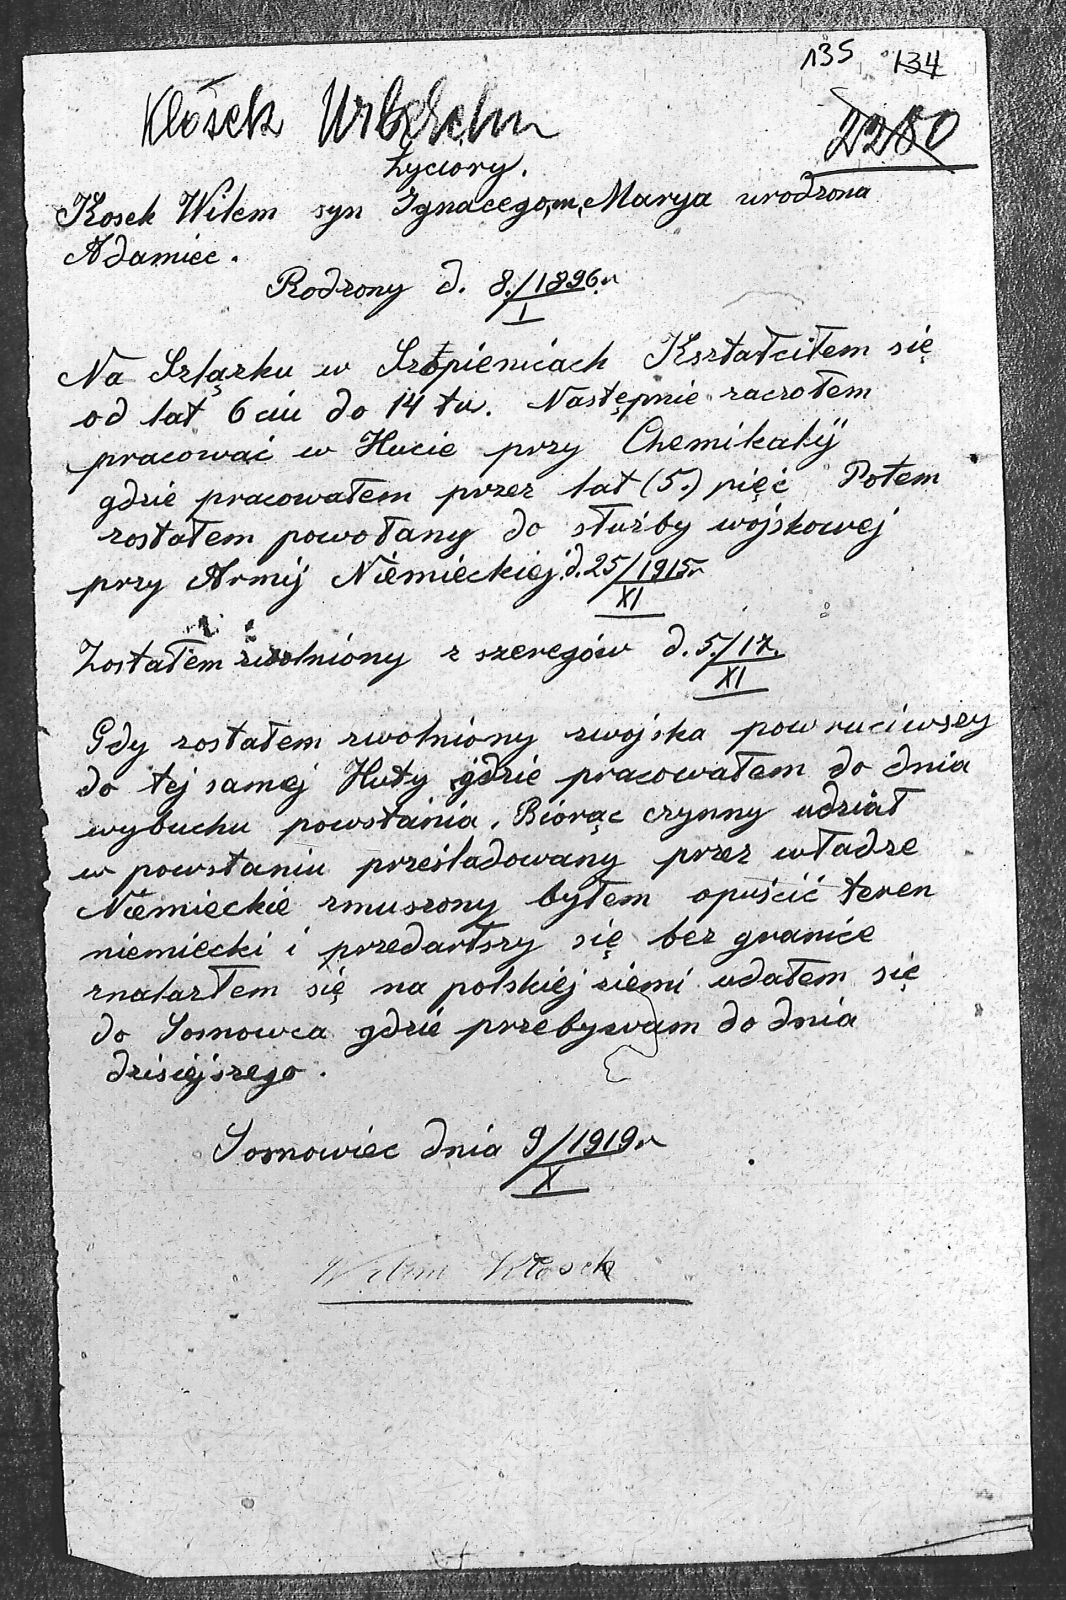 135 134
Kłosek
2280
Życiory.
Kosek Wilem syn Ignacego, m, Marya urodzona
Adamiec.
Rodzony d. 8/I 1896 r
Na Szląsku w Szopienicach Kształciłem się
od lat 6 ciu do 14 tu. Następnie zaczołem
pracować w Hucie przy Chemikalij
gdzie pracowałem przez lat (5.) pięć Potem
zostałem powołany do służby wojskowej
przy Armij Niemieckiej d. 25/XI 1915 r
Zostałem zwolniony z szeregów d. 5./XI 17.
Gdy zostałem zwolniony zwojska powruciwszy
do tej samej Huty gdzie pracowałem do dnia
wybuchu powstania. Biorąc czynny udział
w powstaniu prześladowany przez władze
Niemieckie zmuszony byłem opuścić teren
niemiecki i przedarłszy się bez granice
znalazłem się na polskiej ziemi udałem się
do Sosnowca gdzie przebyzwam do dnia
dzisiejszego.
Sosnowiec dnia 9/X 1919 r
Wilem Kłosek